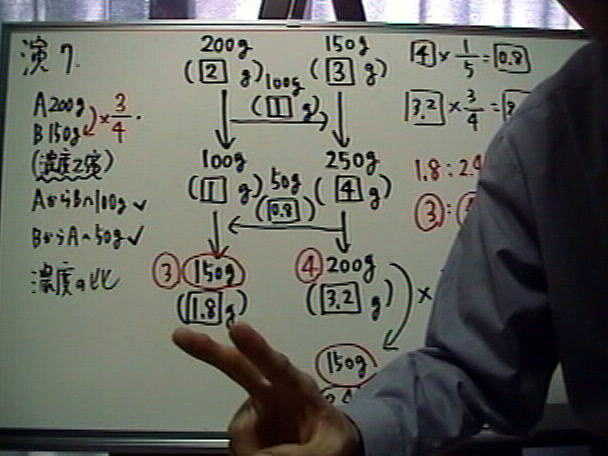 演7.
A 200g
B 150g
×3/4.
(濃度2倍)
AからBへ100g✓
BからAへ50g✓
濃度の比
200g
(2 g)
150g
(3 g)
100g
(1 g)
100g
(1 g)
250g
(4 g)
50g
(0.8)
③ 150g
(1.8 g)
④ 200g
(3.2 g)
×
150g
4 × 1/5 = 0.8
3.2 × 3/4 =
1.8 : 2.4
③ :